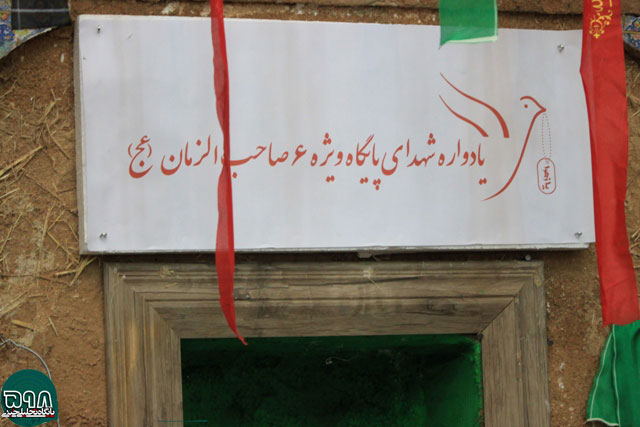 یادواره شهدای پایگاه ویژه ۶ صاحب الزمان (عج)
۵۹۸